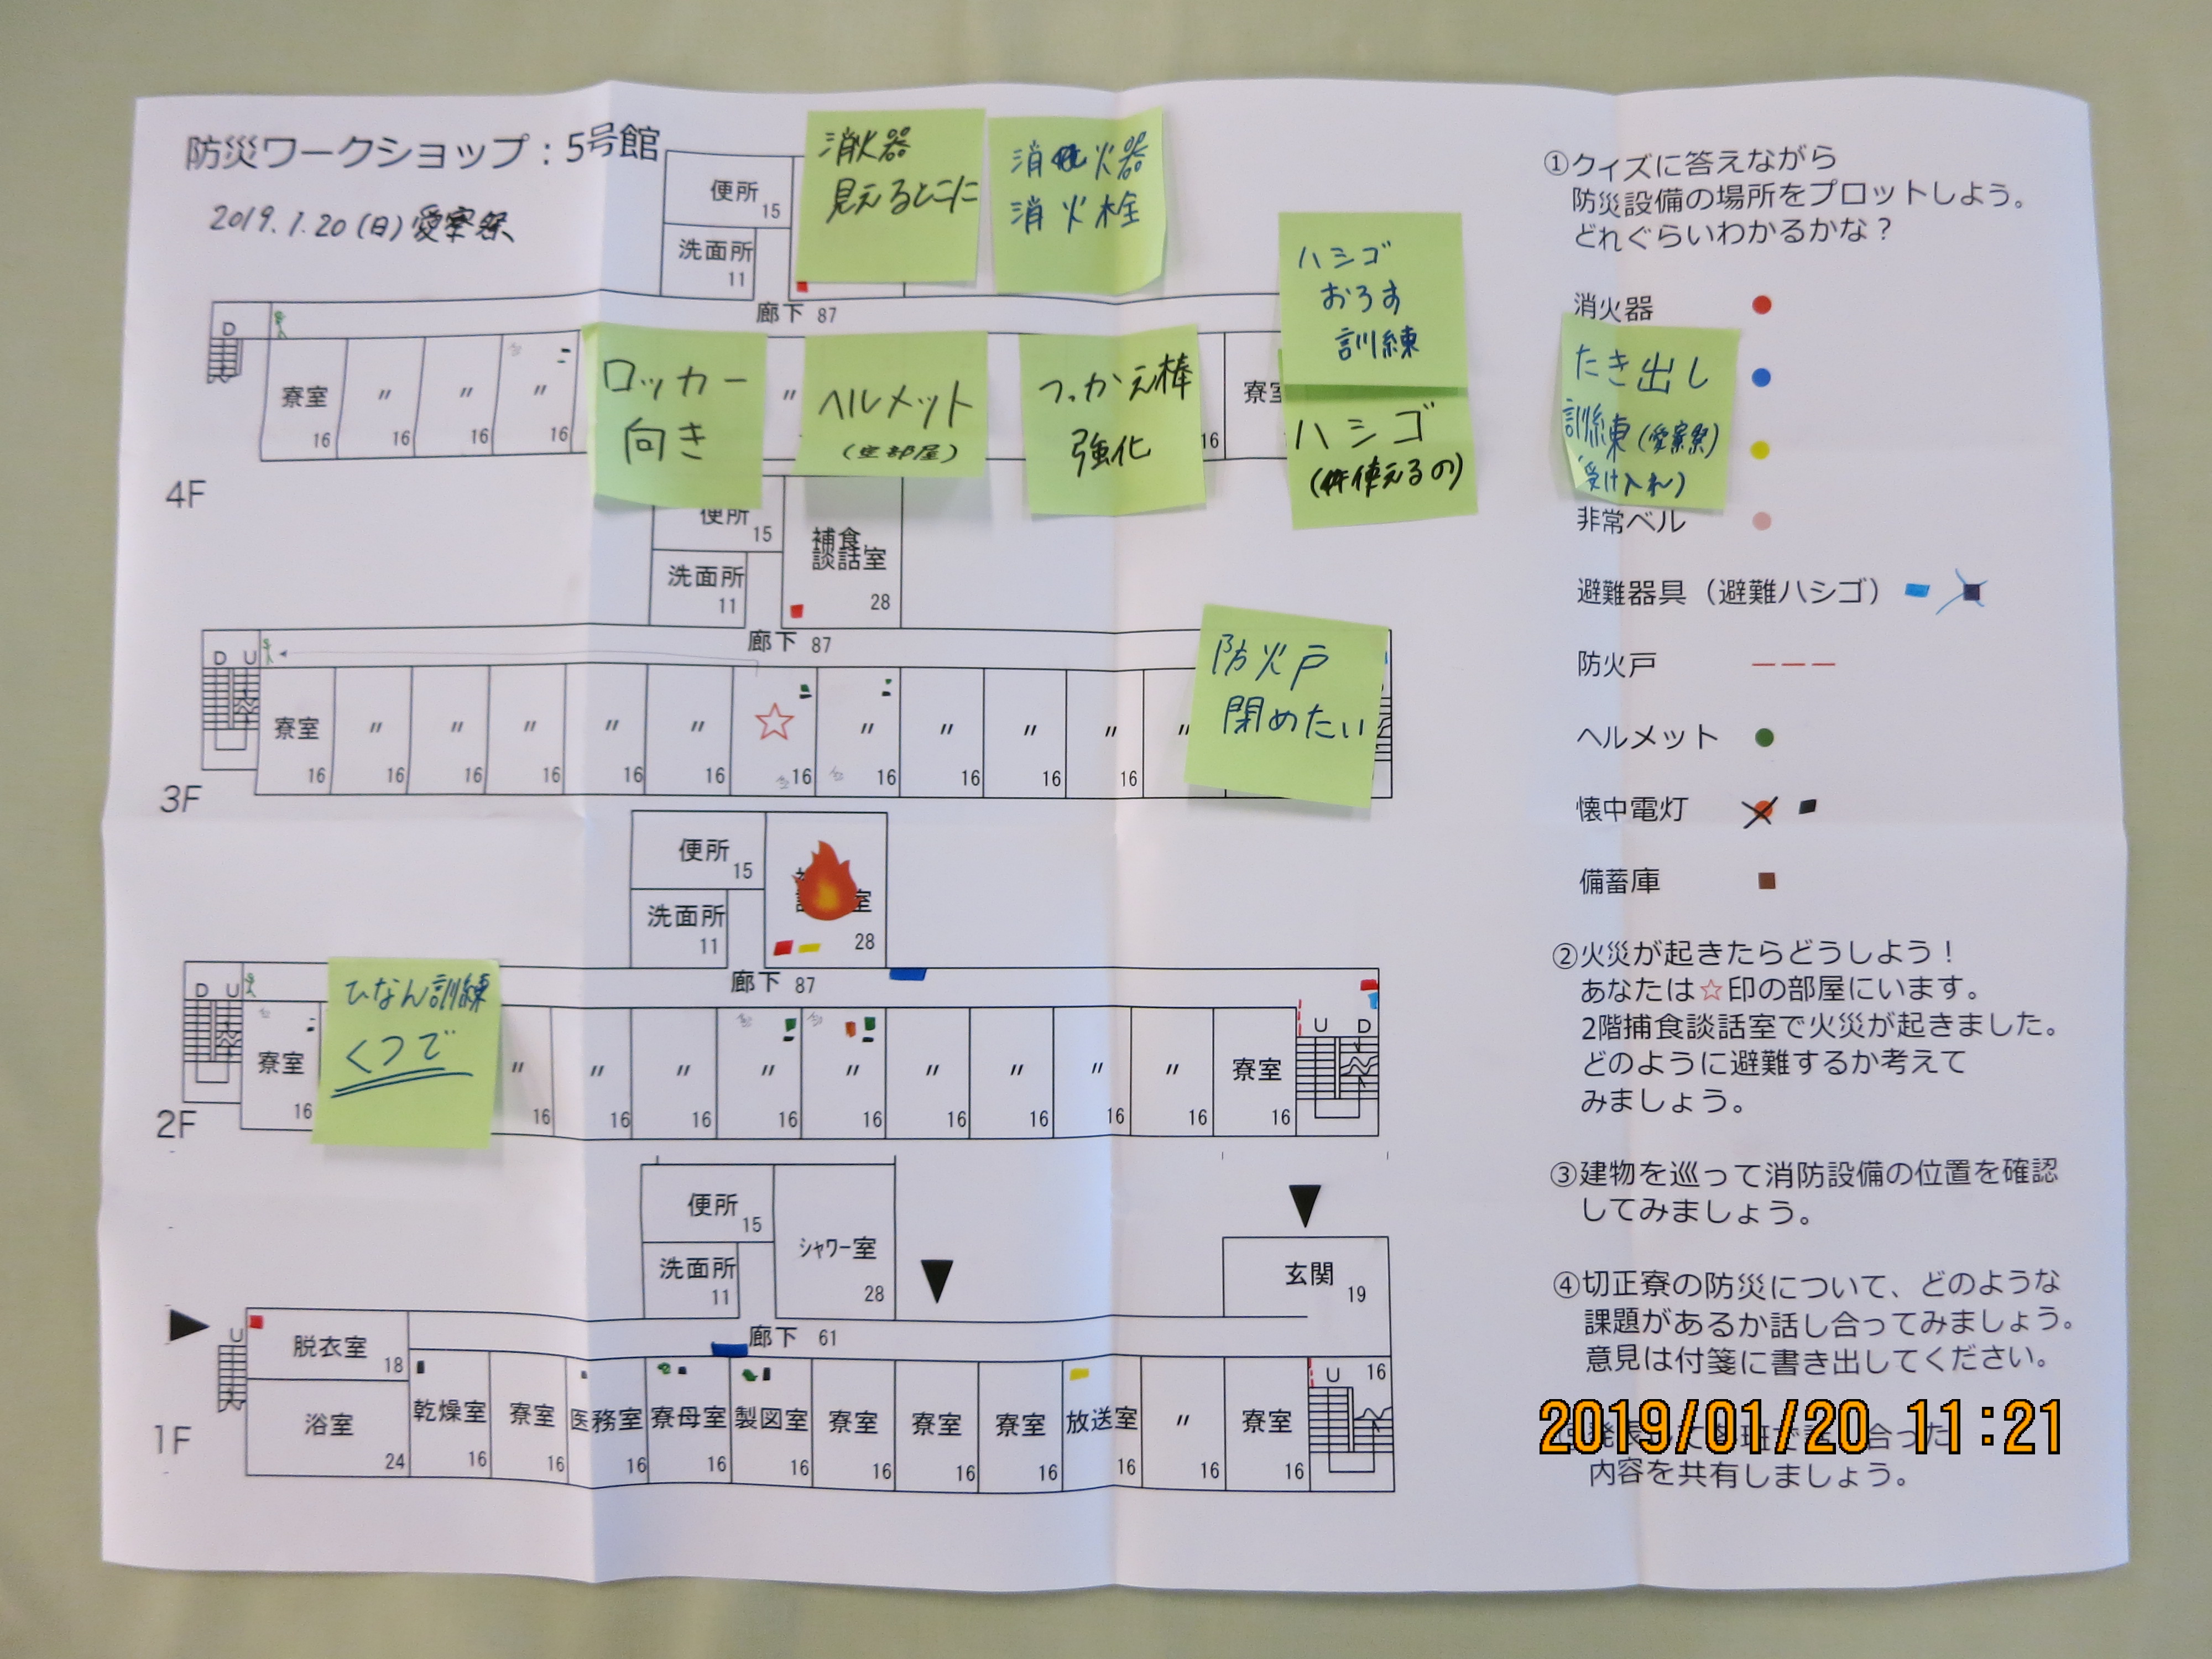 防災ワークショップ：5号館
2019.1.20(日)愛寮祭
消火器
見えるとこに
消火器
消火栓
便所
15
洗面所
11
廊下 87
D
寮室 〃 〃 〃 〃 寮室
16 16 16 16 16
4F
ロッカー
向き
ヘルメット
(空部屋)
つっかえ棒
強化
ハシゴ
おろす
訓練
ハシゴ
(使えるの)
便所
15
洗面所
11
補食
談話室
28
廊下 87
D U
寮室 〃 〃 〃 〃 〃 ☆ 〃 〃 〃 〃 〃
16 16 16 16 16 16 16 16 16 16 16
3F
防火戸
閉めたい
便所
15
洗面所
11
室
28
廊下 87
D U
寮室 〃 〃 〃 〃 〃 〃 〃 〃 〃 寮室
16 16 16 16 16 16 16 16 16 16 16
U D
2F
ひなん訓練
くつで
便所
15
洗面所
11
シャワー室
28
玄関
19
廊下 61
U
脱衣室
18
浴室
24
乾燥室 寮室 医務室 寮母室 製図室 寮室 寮室 寮室 放送室 〃 寮室
16 16 16 16 16 16 16 16 16 16 16
U 16
1F
①クイズに答えながら
防災設備の場所をプロットしよう。
どれぐらいわかるかな？
消火器
たき出し
訓練(愛寮祭)
(受け入れ)
非常ベル
避難器具（避難ハシゴ）
防火戸
ヘルメット
懐中電灯
備蓄庫
②火災が起きたらどうしよう！
あなたは☆印の部屋にいます。
2階捕食談話室で火災が起きました。
どのように避難するか考えて
みましょう。
③建物を巡って消防設備の位置を確認
してみましょう。
④切正寮の防災について、どのような
課題があるか話し合ってみましょう。
意見は付箋に書き出してください。
2019/01/20 11:21
内容を共有しましょう。